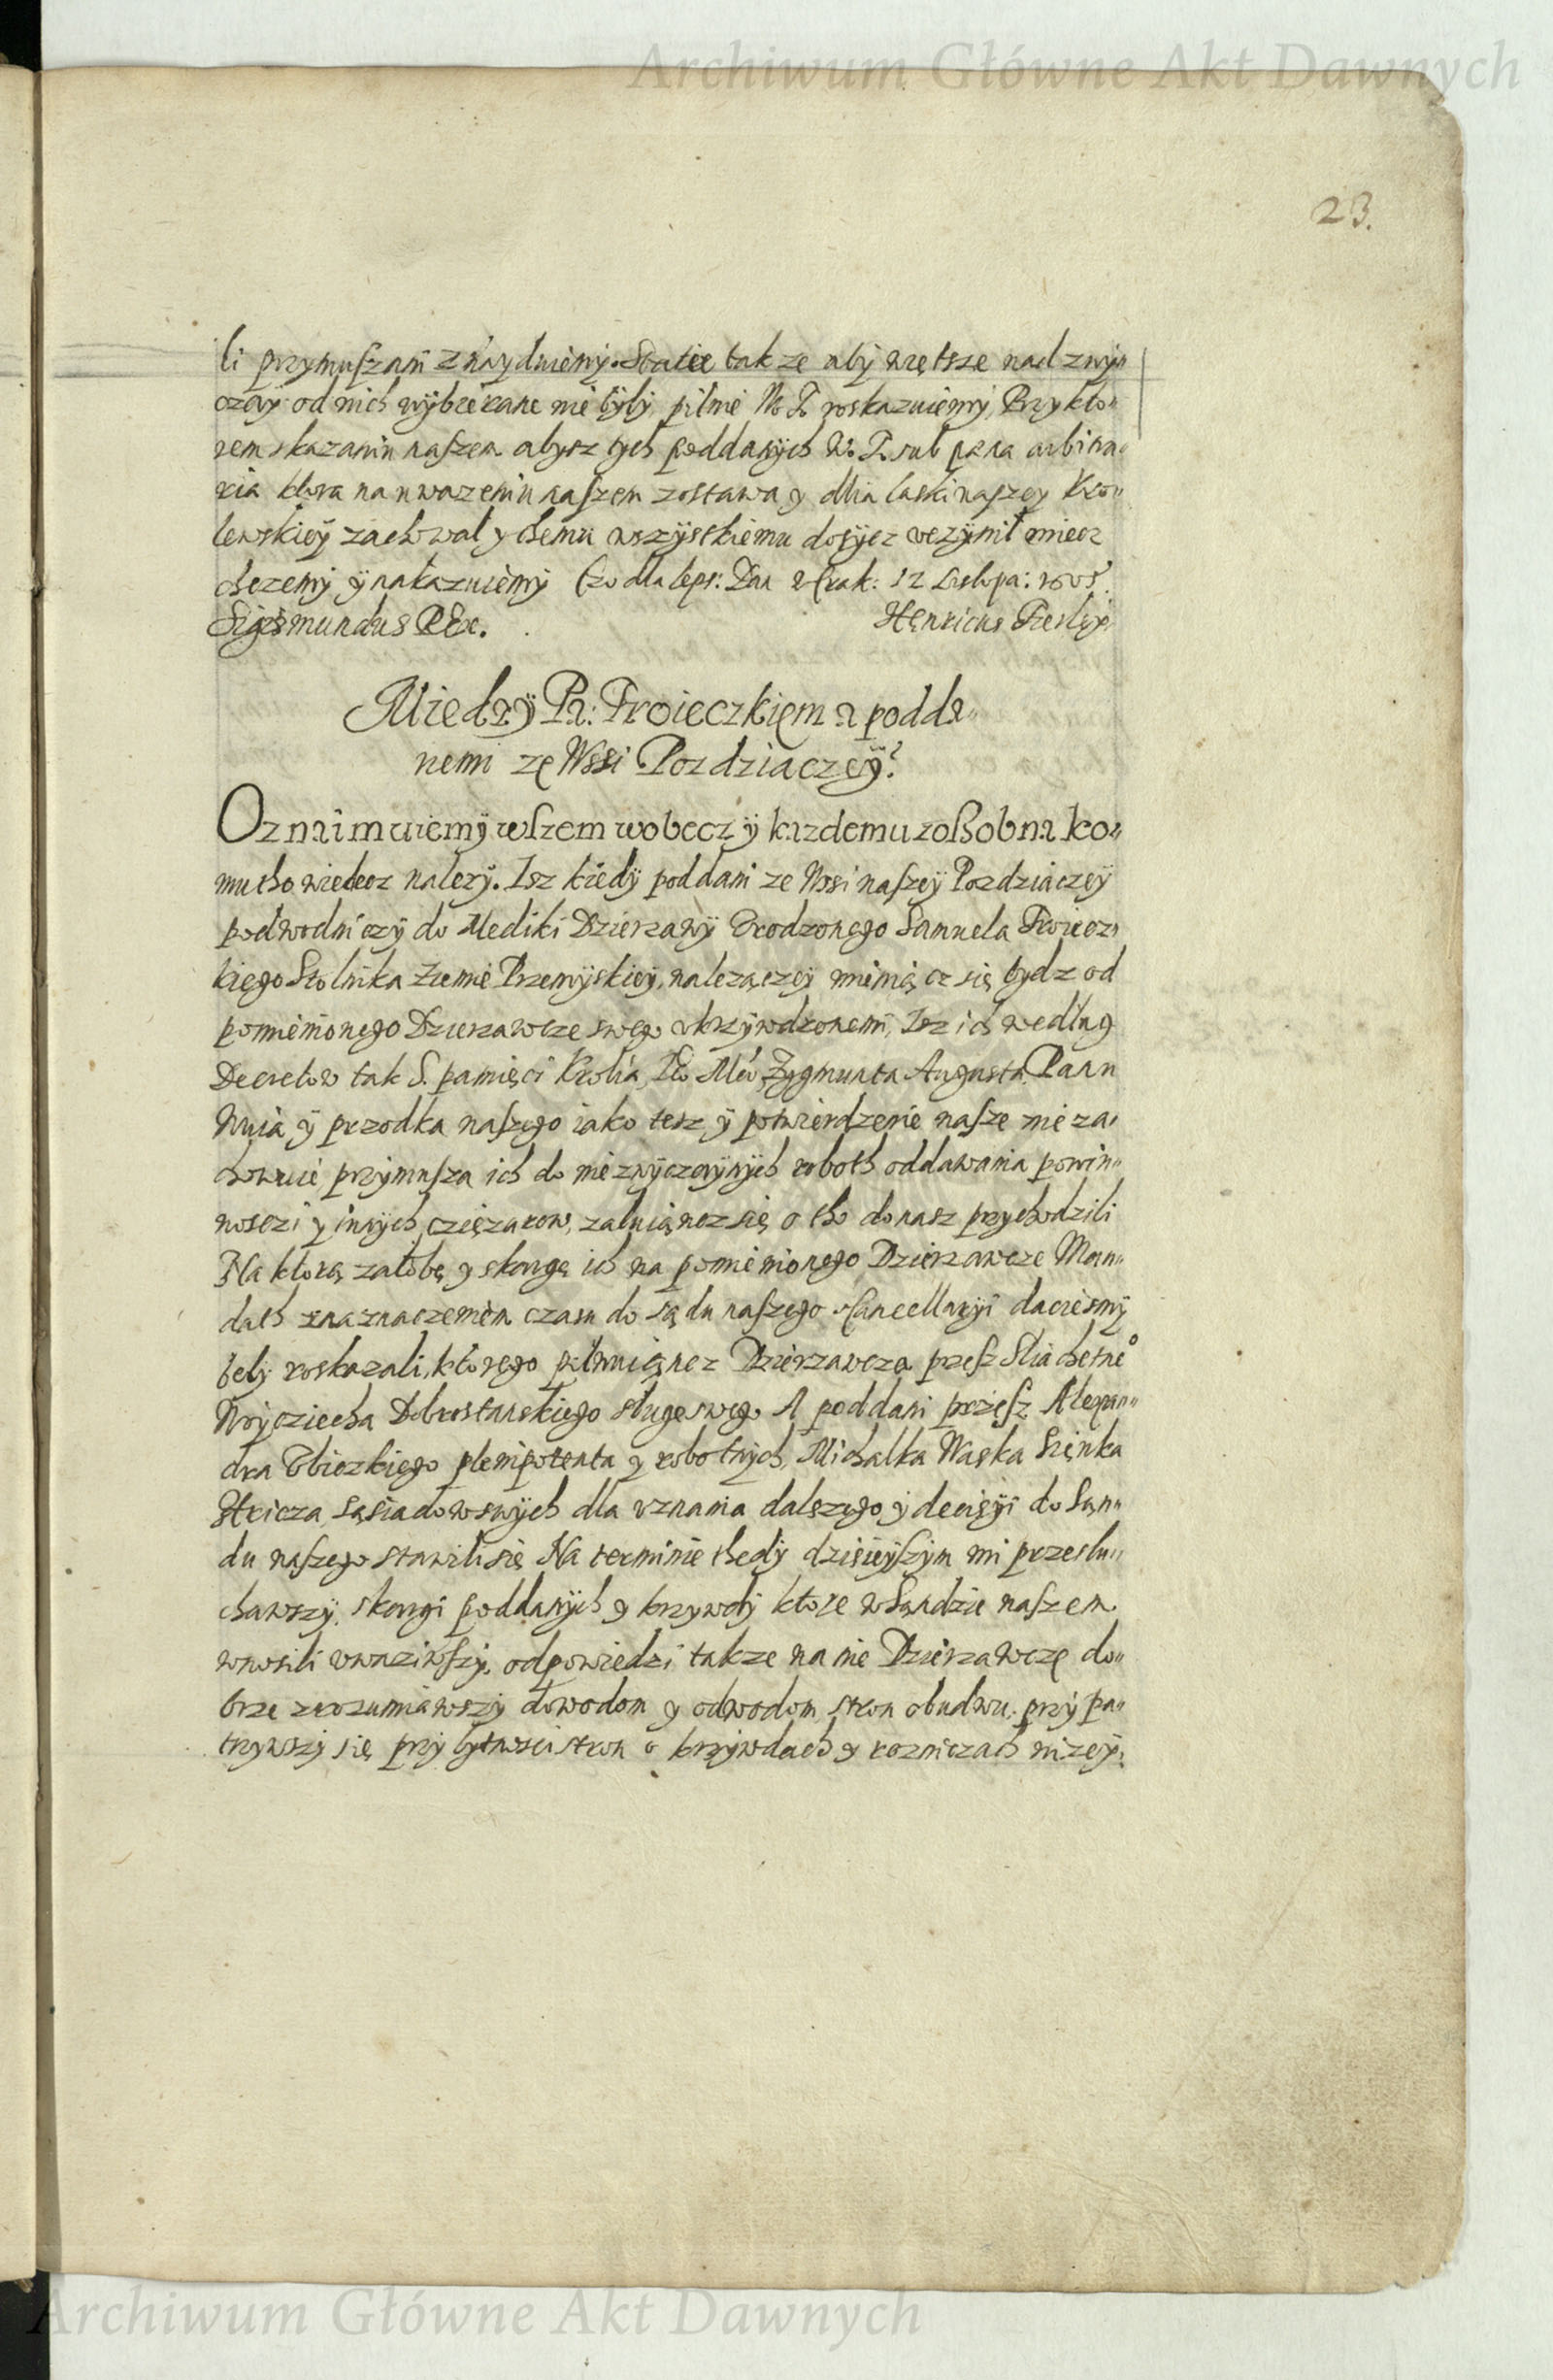 Archiwum Główne Akt Dawnych
23.
li przymuszani znayduiemy. Stacie takze aby więtsze nad zwy„
czay od nich wybierane nie były pilnie W. T. roskazuiemy, Przy kto„
rem skazaniu naszem abysz tych poddanych W. T. sub pæna arbitra„
ria ktora na uwazeniu naszem zostawa y dlia łaski naszey Kro„
lewskiey zachował y themu wszystkiemu dosycz uczynił miecz
chczemy y nakazuiemy Czo dla leps: Dan w Crak: 12 Listopa:
Sigismundus REx.
Henricus Firley
Miedzy Pa: Troieczkięm a podda„
nemi zę Wssi Pozdziaczey
Oznaimuiemy wszem wobecz y kazdemu zossobna ko„
mu tho wiedziec nalezy. Isz kiedy poddani ze Wsi naszey Pozdziaczey
podwodniczy do Mediki Dzierzawy Urodzonego Samuela Troiecz„
kięgo Stolnika Ziemie Przemyskiey, nalezączey mieniącz się bydz od
pomienionego Dzierzawcze swego ukrzywdzonemi, Isz ich według
Decretow tak S. pamięci Krolia, Je° Mći Zygmunta Augusta Pana
Wuia y przodka naszego iako tesz y potwierdzenie nasze nie za„
chowuie przymusza ich do niezwyczaynych roboth oddawania powin„
nosczi y inych cziężarow, zaluiącz się o tho do nasz przychodzili
Na ktorą załobę y skargę ich na pomienionego Dzierzawcze Man„
dath z naznaczeniem czasu do sądu naszego Cancellaryi daciesmy
bely roskazali, ktorego pilnuiącz Dzierzawcza przesz Sliachetne°
Woycziecha Dobrostanskiego sługe swego A poddani przesz Alexan„
dra plenipotenta y robotnych, Michalka Waska Sienka
Hricza sąsiadow swych dla uznania dalszego y decisyi do Sąn„
du naszego stawili się Na terminie thedy dzisieyszym mi przesłu„
chawszy skargi poddanych y krzywdy ktore w Sąndzie naszem
wnosili uwaziwszy, odpowiedzi takze na nie Dzierzawczę do„
brze zrozumiawszy dowodom y odwodom stron obudwu przypa„
trzywszy się przy bytnosci stron o krzywdach y rozniczach nizey
Archiwum Główne Akt Dawnych